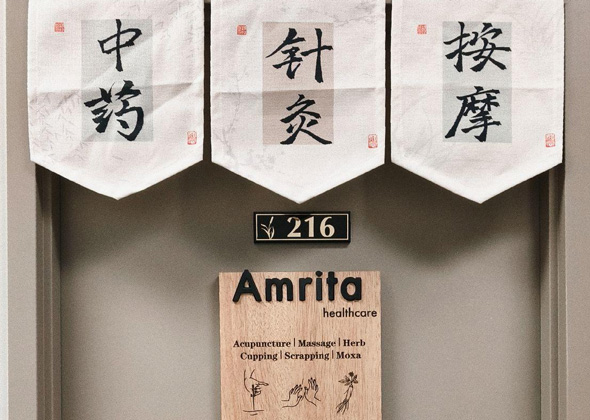 中药
针灸
按摩
216
Amrita
healthcare
Acupuncture | Massage | Herb
Cupping | Scrapping | Moxa